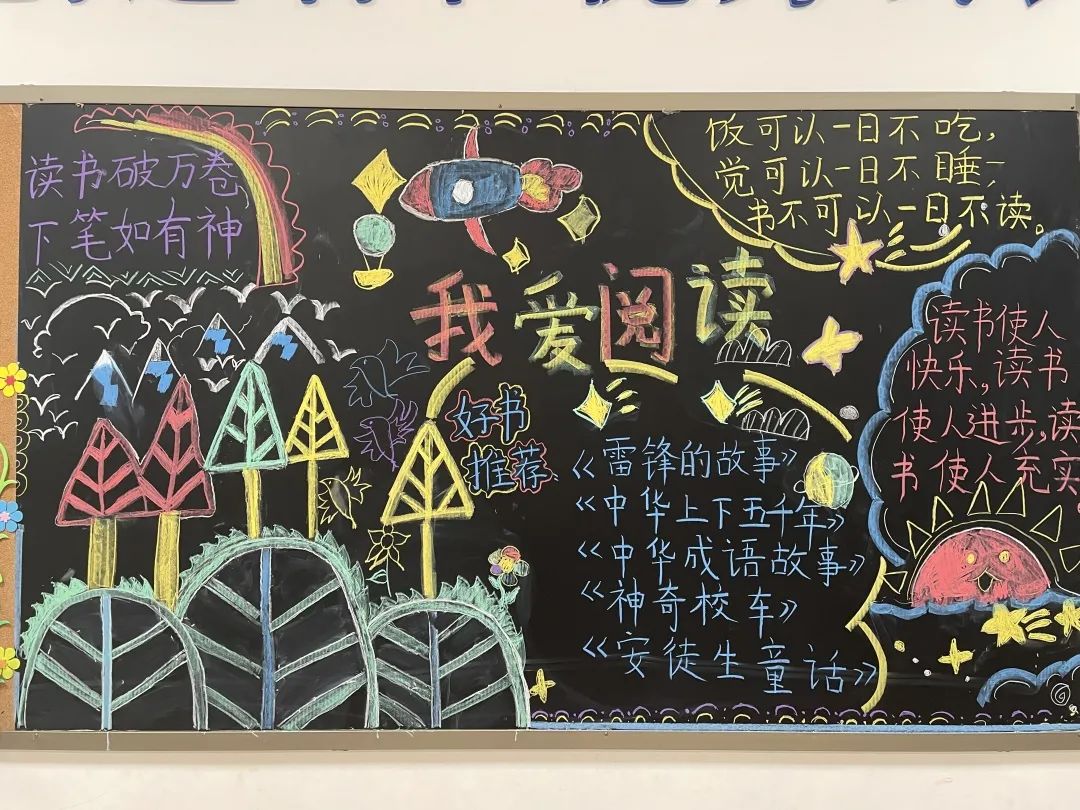 读书破万卷
下笔如有神
饭可以一日不吃，
觉可以一日不睡，
书不可以一日不读。
我爱阅读
好书
推荐
《雷锋的故事》
《中华上下五千年》
《中华成语故事》
《神奇校车》
《安徒生童话》
读书使人
快乐，读书
使人进步，读
书使人充实